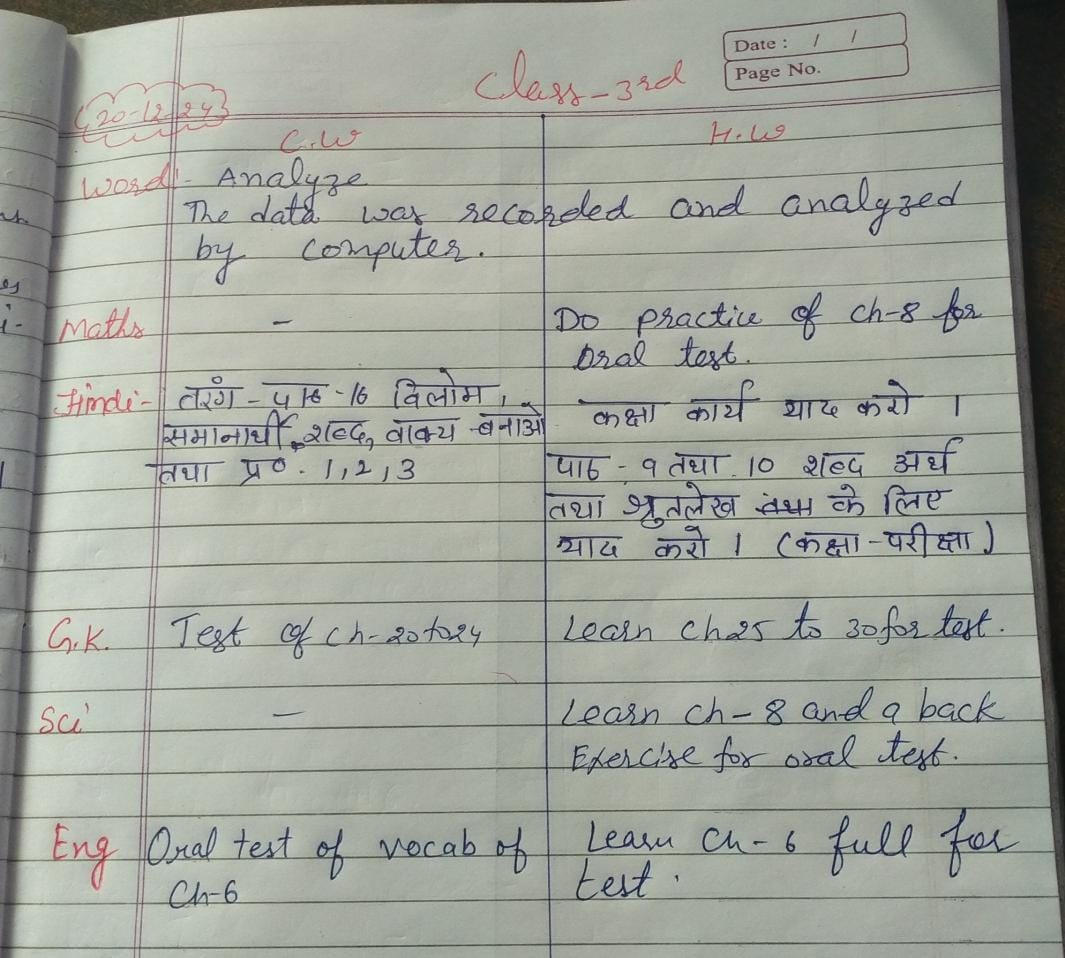 Date : / /
Page No.
Class-3rd
20-12-24
C.W H.W
Word:- Analyze
The data was recorded and analyzed
by computer.
Maths - Do practice of ch-8 for
oral test.
Hindi:- तरंग - पाठ -16 विलोम, कक्षा कार्य याद करो ।
समानार्थी शब्द, वाक्य बनाओ
तथा प्र०. 1,2,3 पाठ - 9 तथा 10 शब्द अर्थ
तथा श्रुतलेख के लिए
याद करो । (कक्षा-परीक्षा)
G.K. Test of ch-20 to 24 Learn ch 25 to 30 for test.
Sci - Learn ch-8 and 9 back
Exercise for oral test.
Eng Oral test of vocab of Learn Ch-6 full for
Ch-6 test.